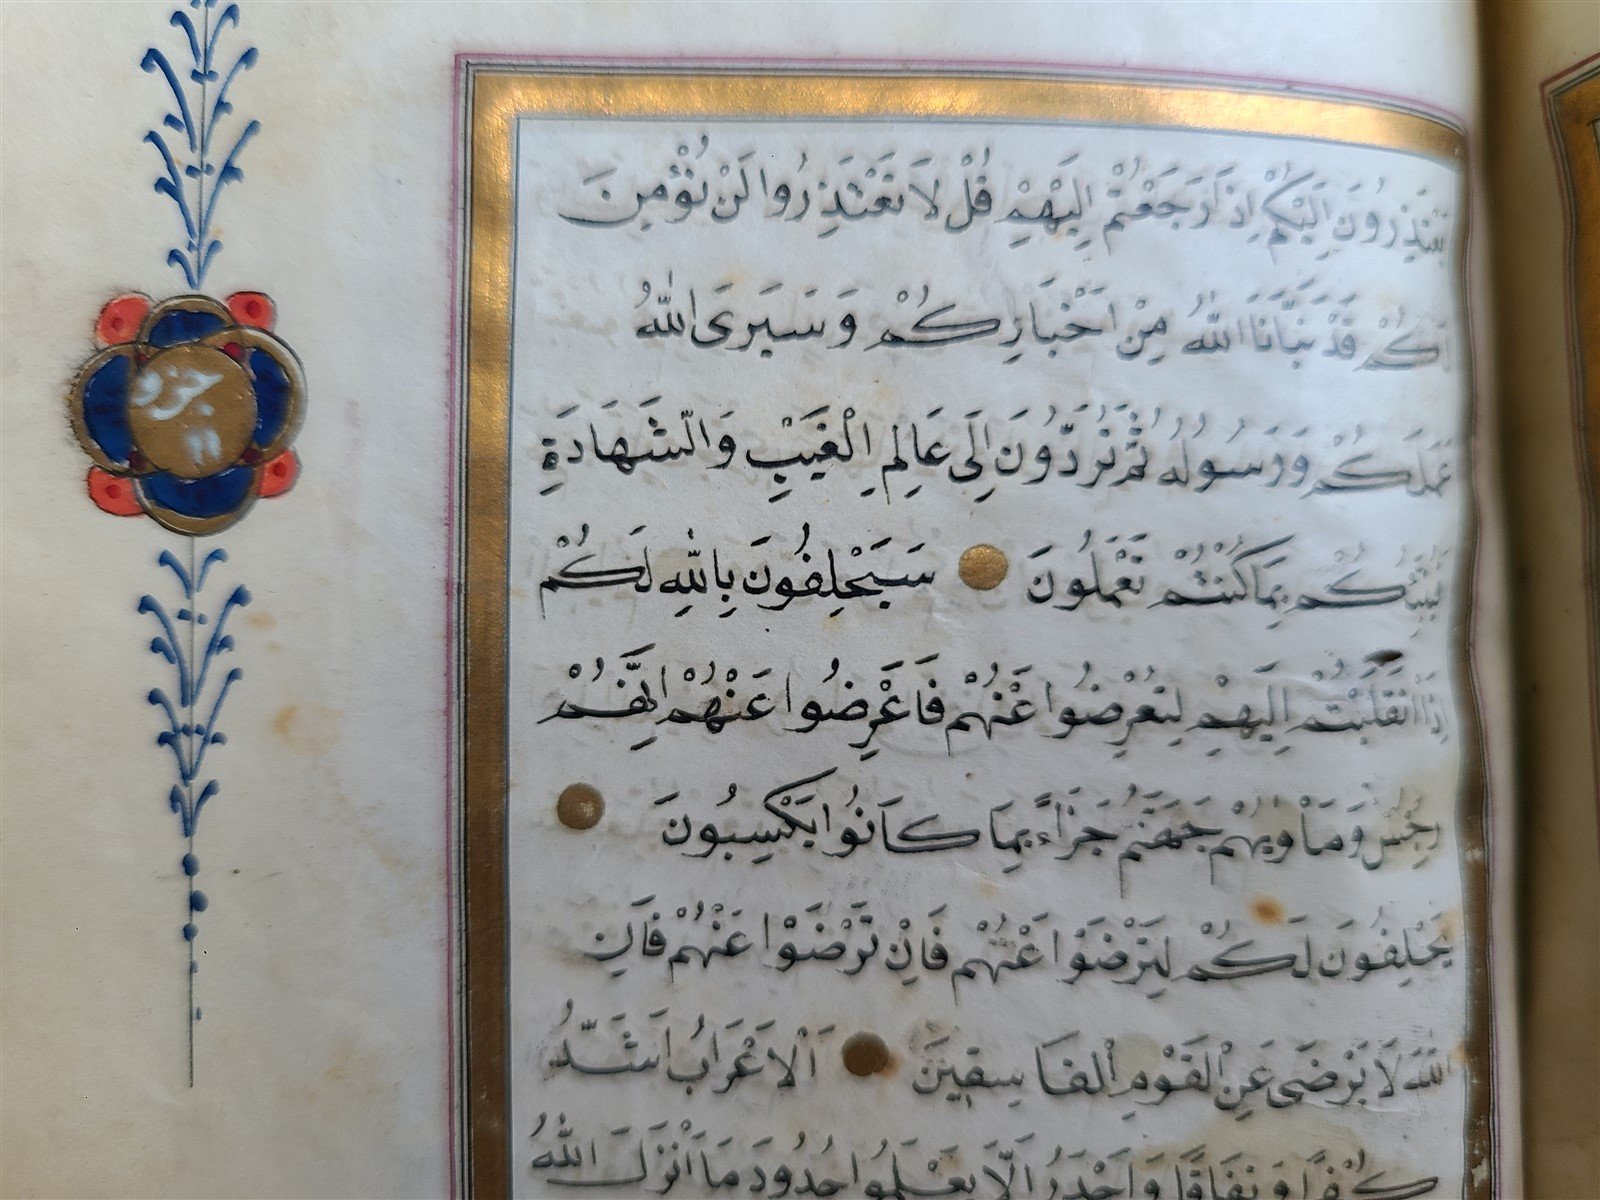 يَعْتَذِرُونَ اِلَيْكُمْ اِذَا رَجَعْتُمْ اِلَيْهِمْ قُلْ لَا تَعْتَذِرُوا لَنْ نُؤْمِنَ
لَكُمْ قَدْ نَبَّاَنَا اللّٰهُ مِنْ اَخْبَارِكُمْ وَسَيَرَى اللّٰهُ
عَمَلَكُمْ وَرَسُولُهُ ثُمَّ تُرَدُّونَ اِلَى عَالِمِ الْغَيْبِ وَالشَّهَادَةِ
فَيُنَبِّئُكُمْ بِمَا كُنْتُمْ تَعْمَلُونَ سَيَحْلِفُونَ بِاللّٰهِ لَكُمْ
اِذَا انْقَلَبْتُمْ اِلَيْهِمْ لِتُعْرِضُوا عَنْهُمْ فَاَعْرِضُوا عَنْهُمْ اِنَّهُمْ
رِجْسٌ وَمَاْوٰيهُمْ جَهَنَّمُ جَزَاءً بِمَا كَانُوا يَكْسِبُونَ
يَحْلِفُونَ لَكُمْ لِتَرْضَوْا عَنْهُمْ فَاِنْ تَرْضَوْا عَنْهُمْ فَاِنَّ
اللّٰهَ لَا يَرْضَى عَنِ الْقَوْمِ الْفَاسِقِينَ اَلْاَعْرَابُ اَشَدُّ
كُفْرًا وَنِفَاقًا وَاَجْدَرُ اَلَّا يَعْلَمُوا حُدُودَ مَا اَنْزَلَ اللّٰهُ
جزو
١١